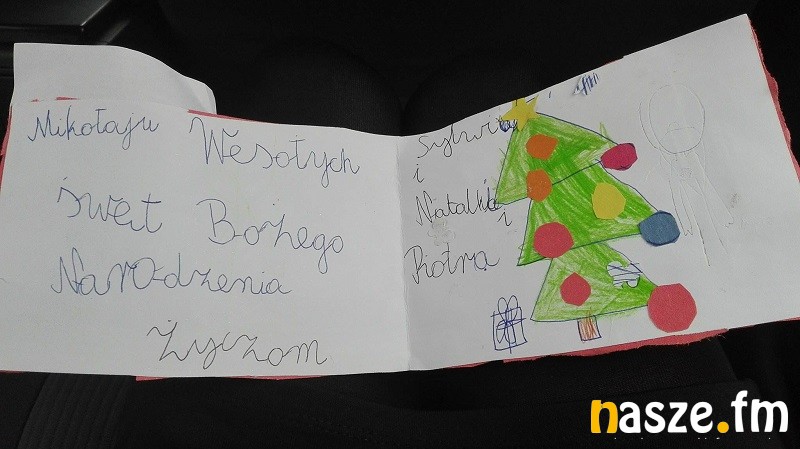 Mikołaju Wesołych
świt Bożego
Narodzenia
życzom
Sylwia
i
Natalia i
Piotra
nasze.fm